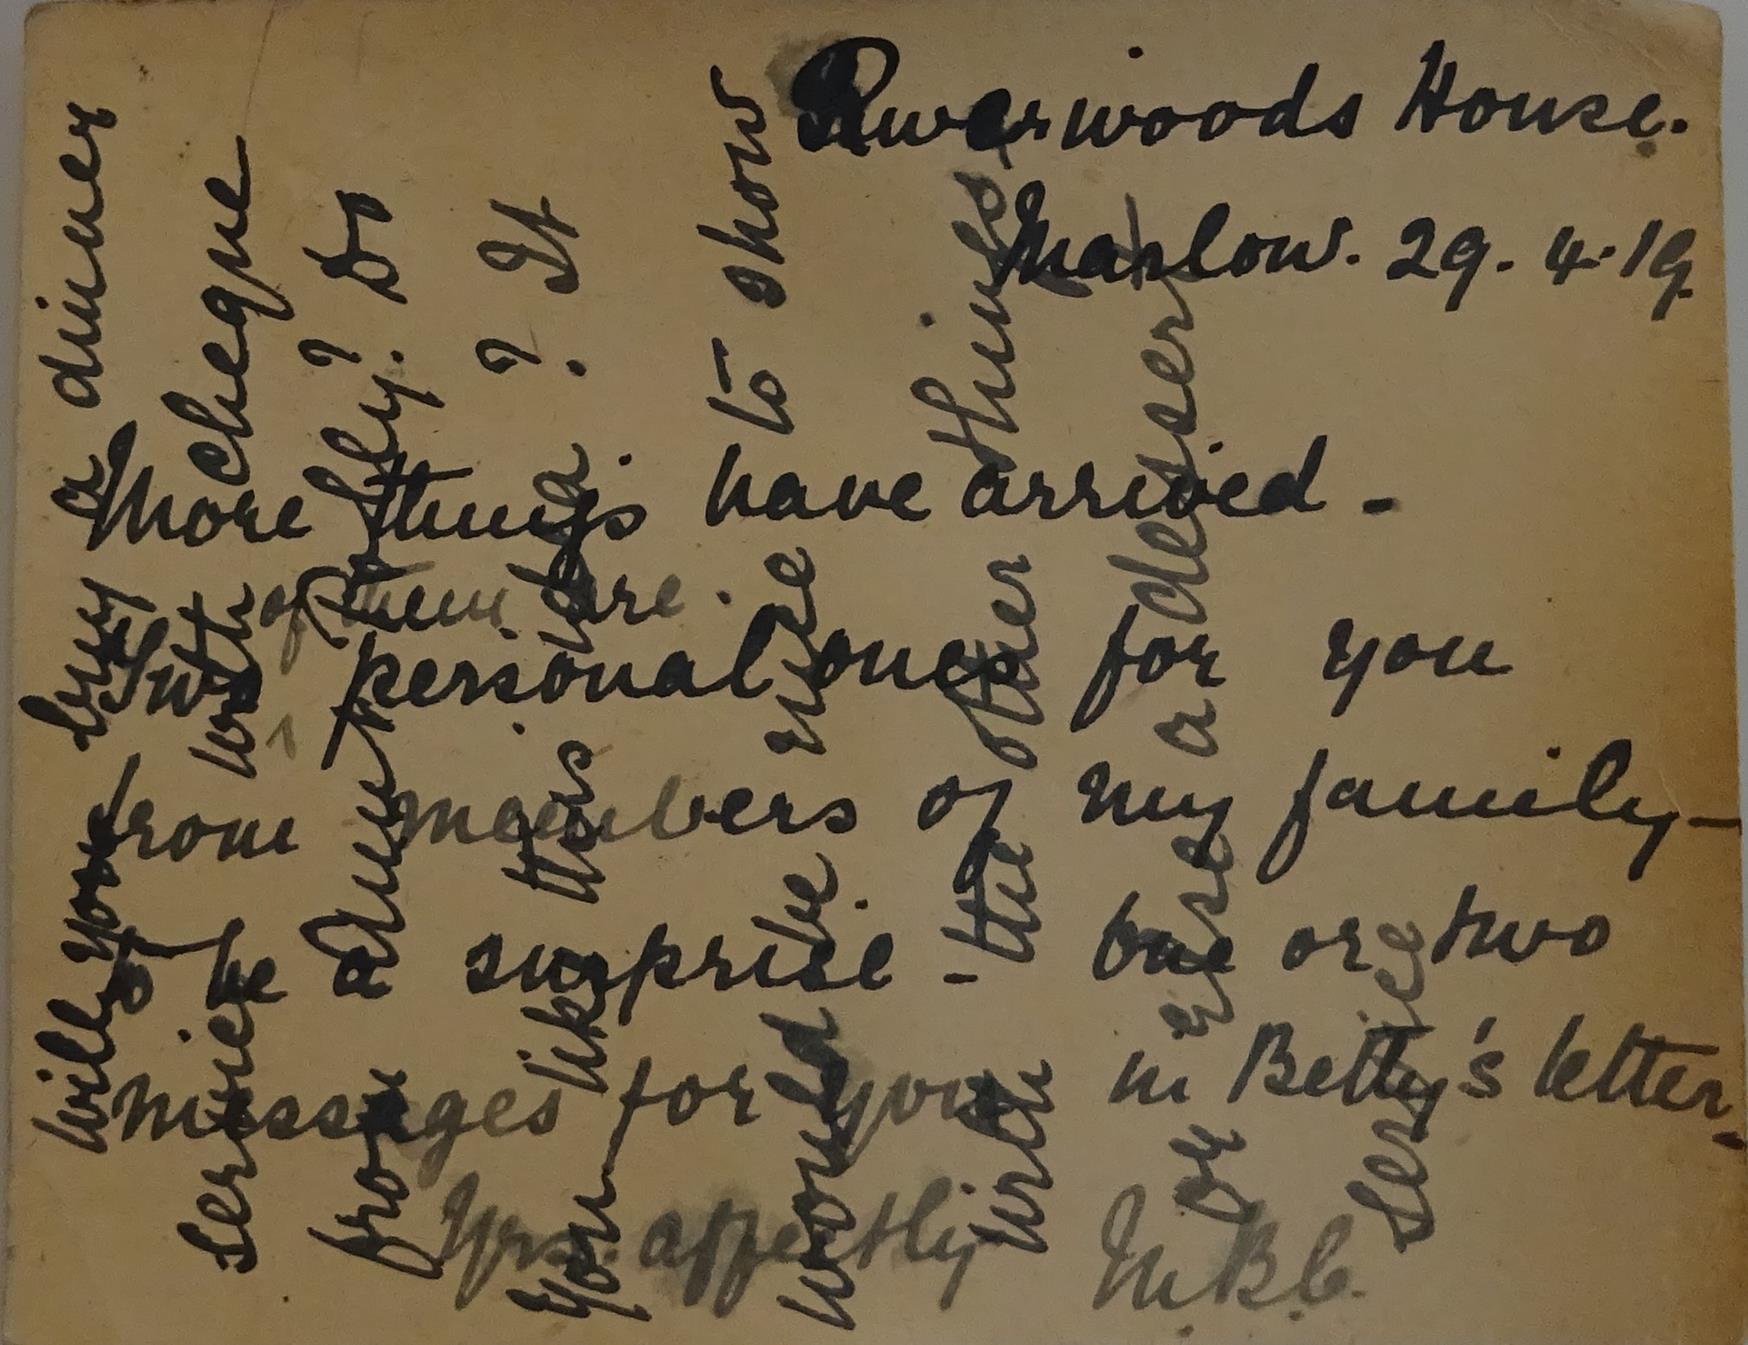 Riverwoods House.
Marlow. 29.4.19
More things have arrived -
of them are
Two personal ones for you
from members of my family -
be a surprise - one or two
messages for you in Betty's letter.
Yrs. affectly M.B.C.
Will you buy a dinner
service with cheque
from Aunt Polly? Do
you like this ? It
would be nice to show
with the other things.
or else a dessert
service